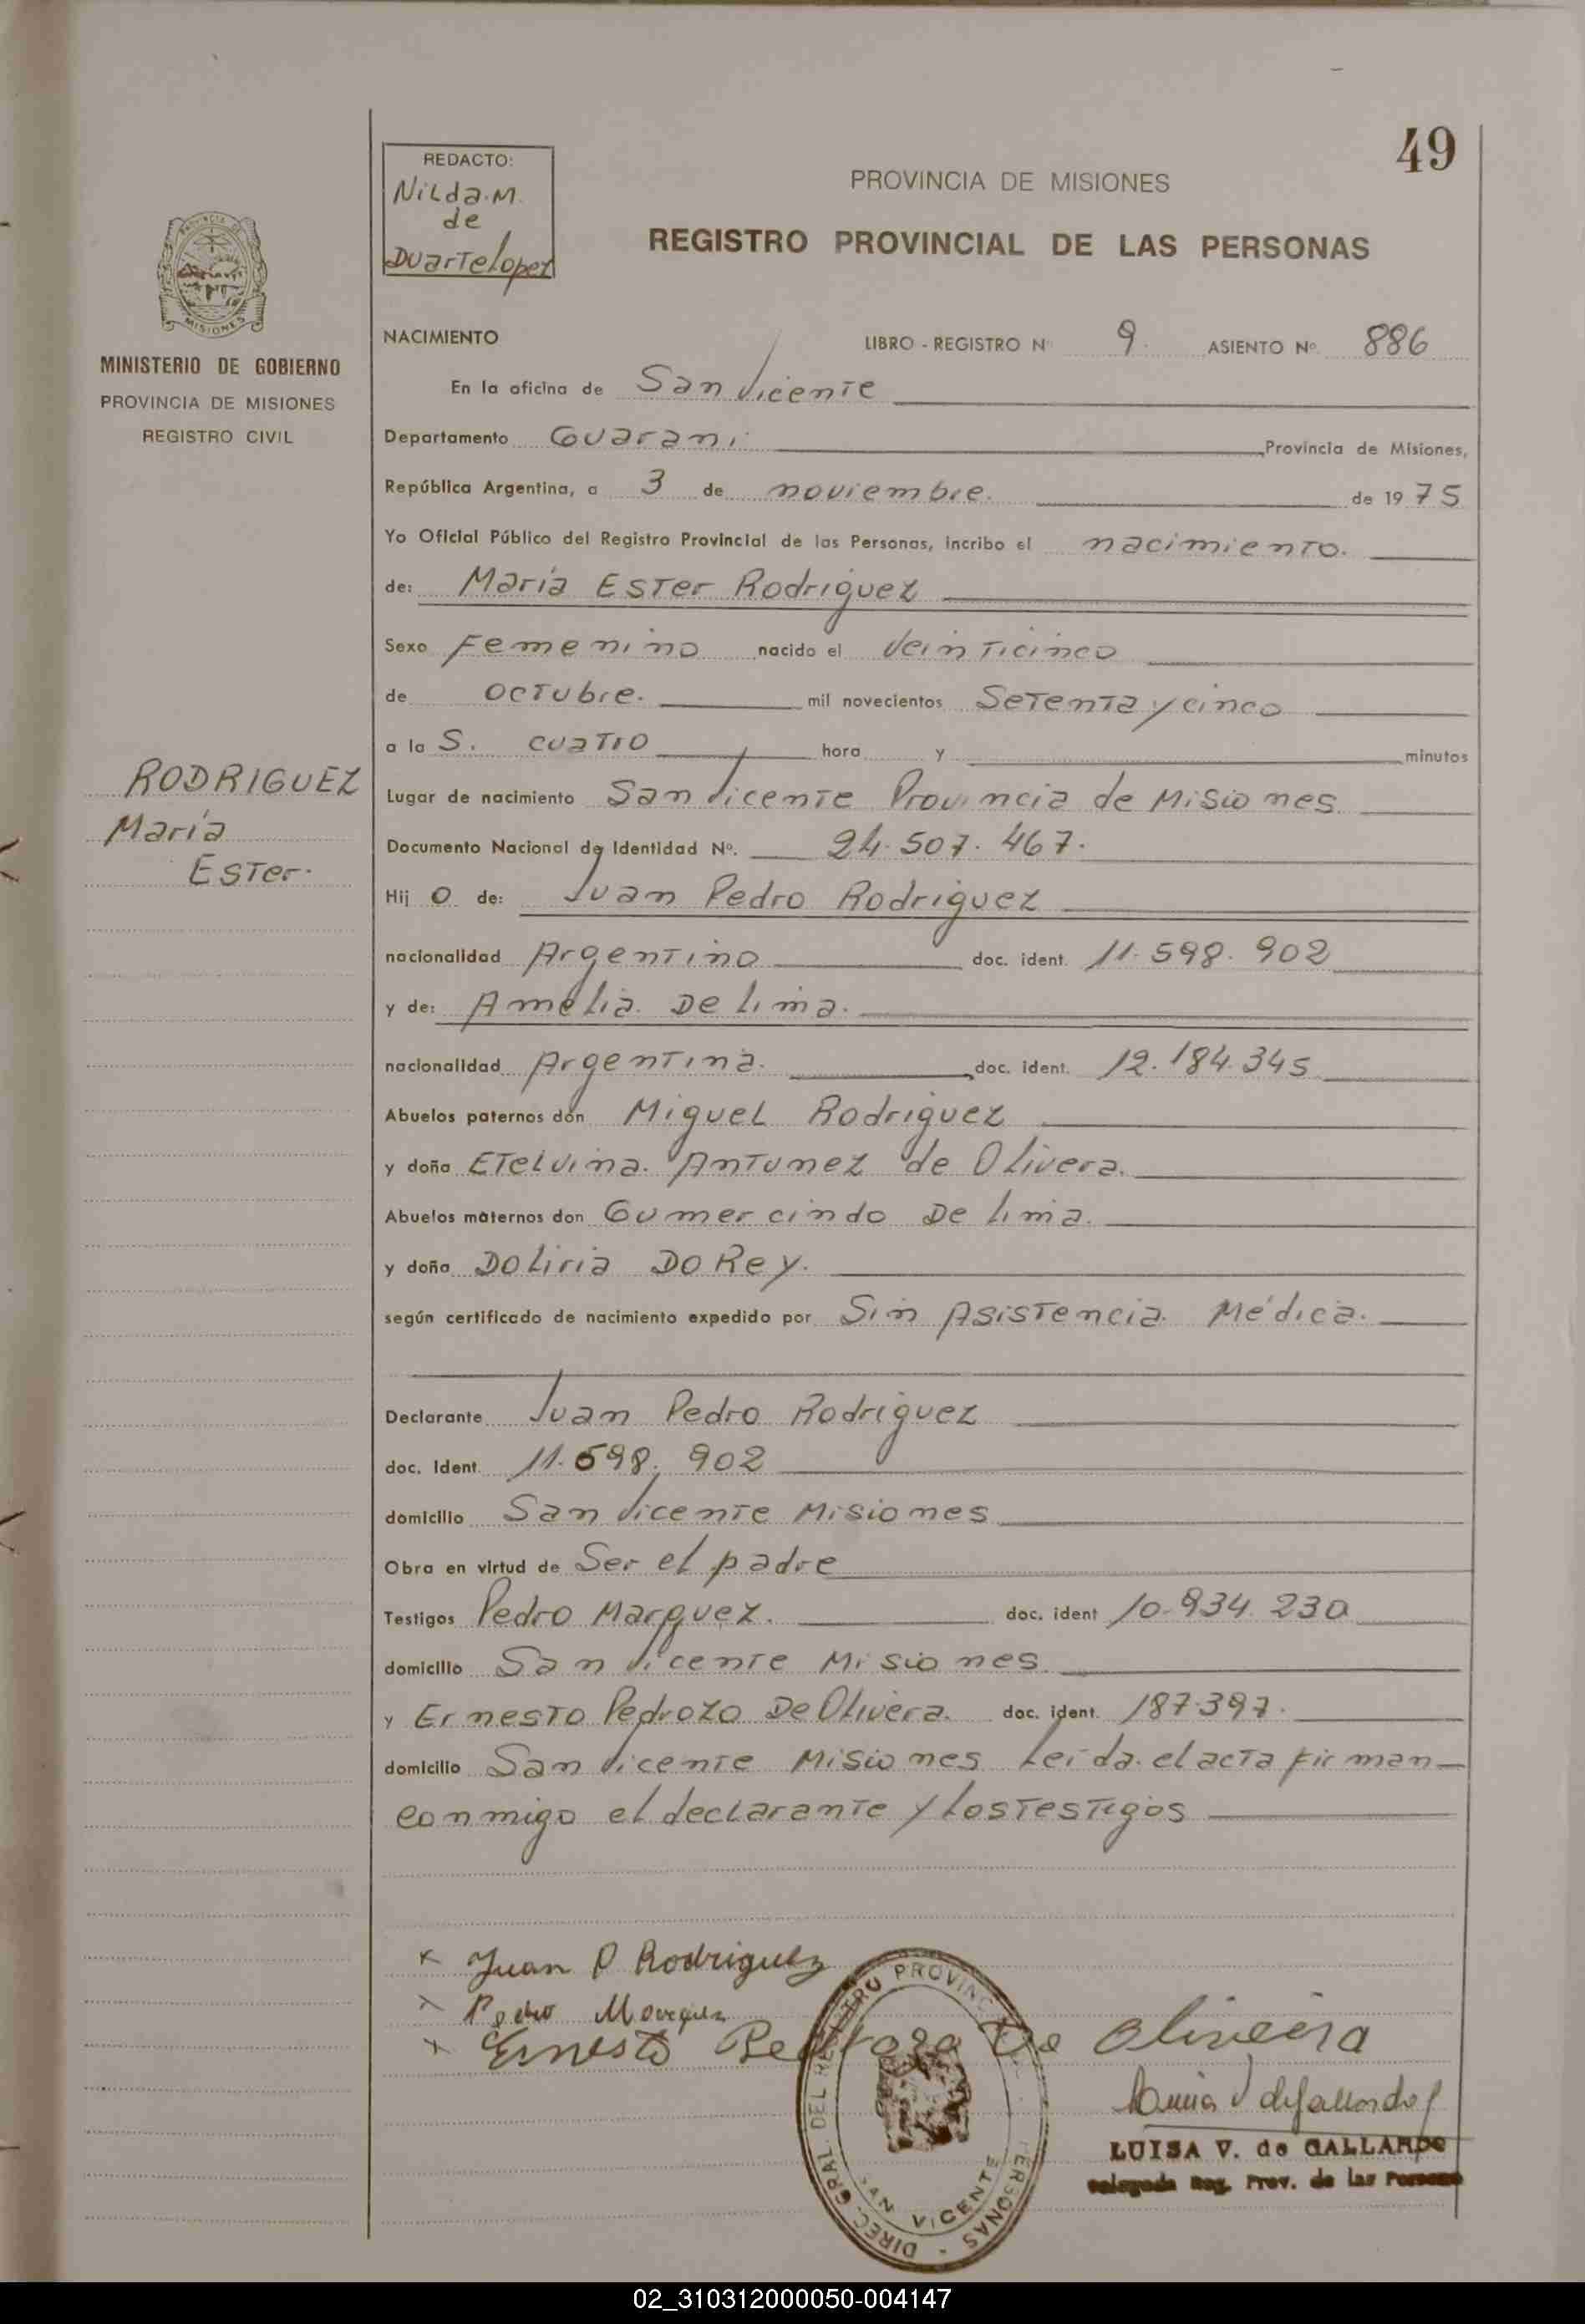 49
REDACTO:
Nilda.M.
de
Duartelopez
PROVINCIA DE MISIONES
REGISTRO PROVINCIAL DE LAS PERSONAS
MISIONES
MINISTERIO DE GOBIERNO
PROVINCIA DE MISIONES
REGISTRO CIVIL
NACIMIENTO LIBRO - REGISTRO Nº 9. ASIENTO Nº 886
En la oficina de San Vicente
Departamento Guarani Provincia de Misiones,
República Argentina, a 3 de noviembre. de 1975
Yo Oficial Público del Registro Provincial de las Personas, incribo el nacimiento.
de: María Ester Rodriguez
Sexo Femenino nacido el Veinticinco
de octubre. mil novecientos Setenta y cinco
a la S. cuatro hora y minutos
RODRIGUEZ
María
Ester.
Lugar de nacimiento San Vicente Provincia de Misiones
Documento Nacional de Identidad Nº. 24.507.467.
Hij o de: Juan Pedro Rodriguez
nacionalidad Argentino doc. ident. 11.598.902
y de: Amelia De lima.
nacionalidad Argentina. doc. ident. 12.184.345
Abuelos paternos don Miguel Rodriguez
y doña Etelvina. Antunez de Olivera.
Abuelos maternos don Gumercindo De lima.
y doña Doliria Do Rey.
según certificado de nacimiento expedido por Sin Asistencia. Médica.
Declarante Juan Pedro Rodriguez
doc. Ident. 11.598.902
domicilio San Vicente Misiones
Obra en virtud de Ser el padre
Testigos Pedro Marquez. doc. ident 10.934.230
domicilio San Vicente Misiones.
y Ernesto Pedrozo De Olivera. doc. ident. 187.397.
domicilio San Vicente Misiones Leida. el acta firman
conmigo el declarante y los testigos
x Juan P Rodriguez
x Pedro Marquez
x Ernesto Pedrozo De Oliveira
DIREC. GRAL. DEL REGISTRO PROVINCIAL PERSONAS -
SAN VICENTE
LUISA V. de GALLARDO
Delegada Reg. Prov. de las Personas
02_310312000050-004147